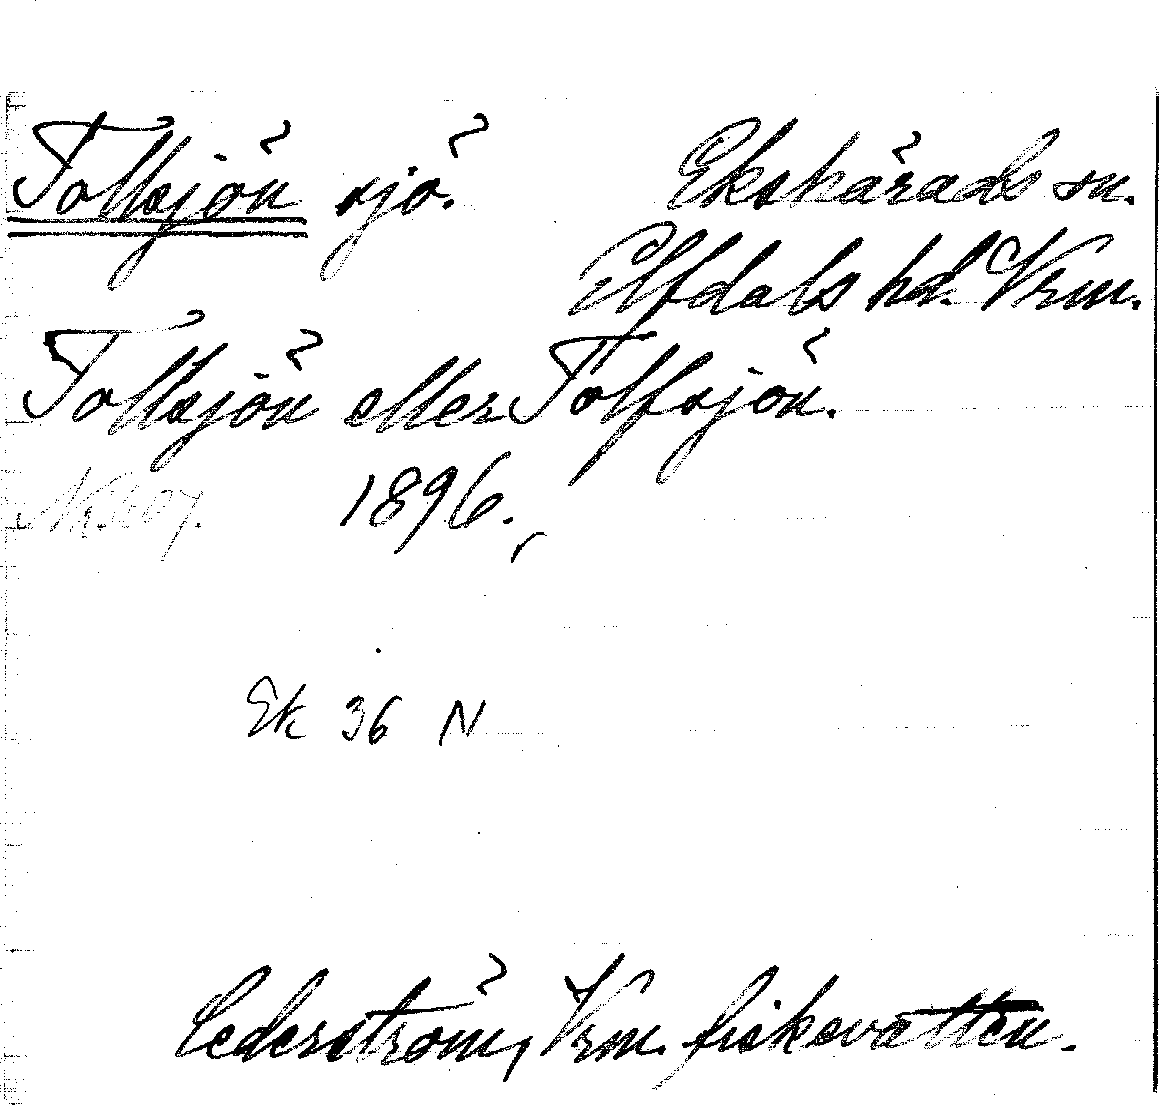 Tollsjön sjö. Ekshärads sn.
Elfdals hd. Vrm.
Tollsjön eller Tolfsjön.
1896.
Ek 36 N
Cederström, Vrm. fiskevatten.